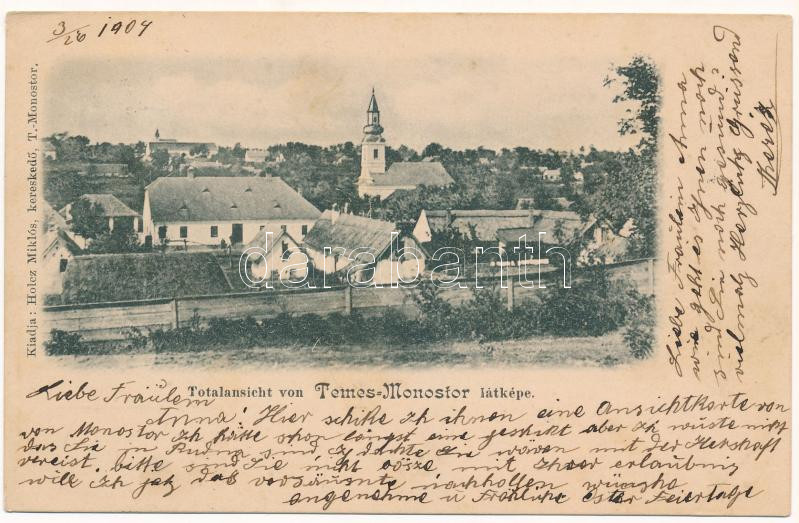 3/26 1904
Kiadja: Holcz Miklós, kereskedő, T.-Monostor.
darabanth
Totalansicht von Temes-Monostor látképe.
Liebe Fräulem Anna
wie geht es Ihnen noch
sind Sie noch gesund?
vielmag Herzlich Grüs
Liebe Fräulem
Anna! Hier schike Ich ihnen eine Ansichtkarte von
von Monostor Ich hätte schon längst eine geschikt aber Ich wüste nicht
das Sie in sind Ich dachte Sie waren mit der Herschaft
vereist. bitte sind Sie nicht böse mit Ihrer erlaubnis
will Ich jetz das versäumte nachhollen wünsche
angenehme u Fröhliche Oster Feiertage